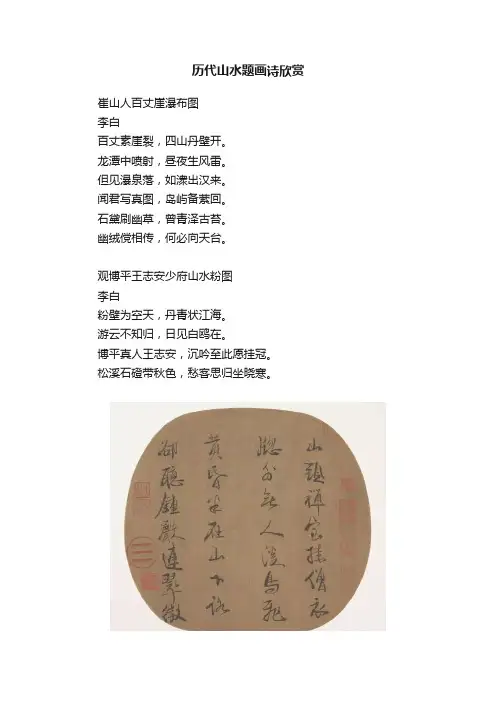 历代山水题画诗欣赏
崔山人百丈崖瀑布图
李白
百丈素崖裂，四山丹壁开。
龙潭中喷射，昼夜生风雷。
但见瀑泉落，如潀出汉来。
闻君写真图，岛屿备萦回。
石黛刷幽草，曾青泽古苔。
幽缄傥相传，何必向天台。
观博平王志安少府山水粉图
李白
粉壁为空天，丹青状江海。
游云不知归，日见白鸥在。
博平真人王志安，沉吟至此愿挂冠。
松溪石磴带秋色，愁客思归坐晓寒。
山頭禪室挂僧衣
窓外無人溪鳥飛
黄昏半在山下路
却聽鍾聲連翠微